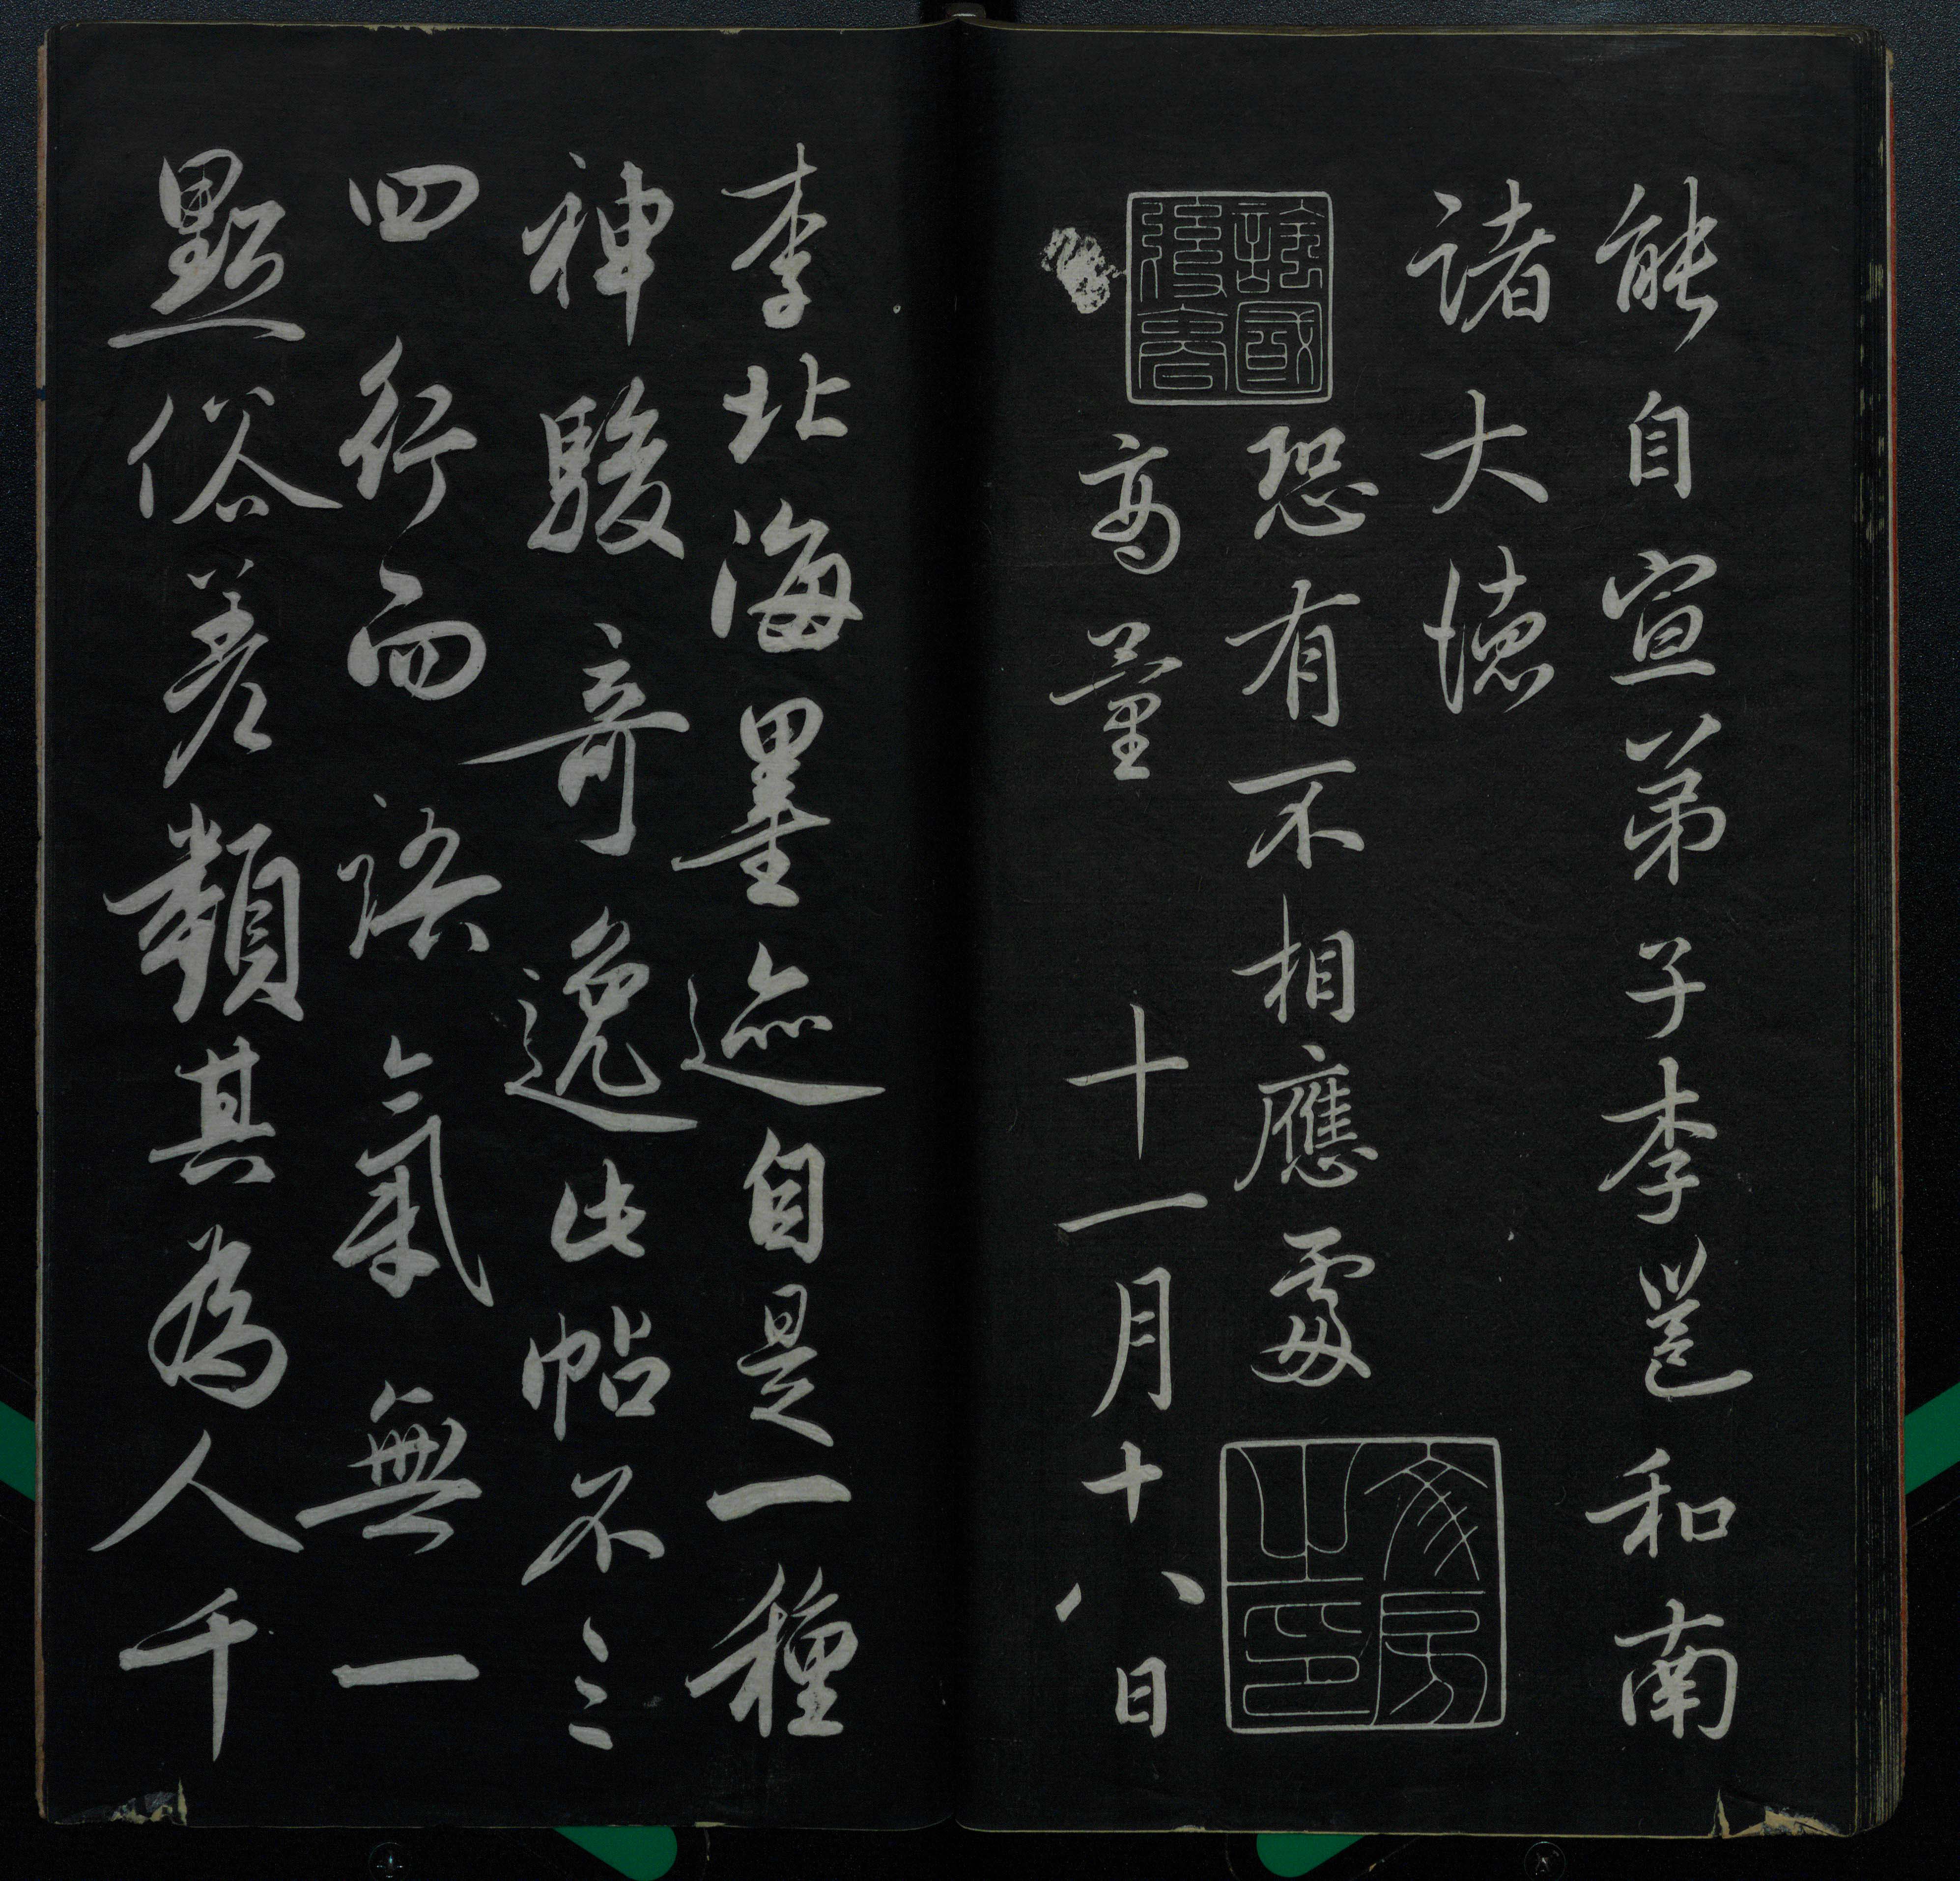 能自宣弟子李邕和南
諸大德
恐有不相應處
高量 十一月十八日
文房之印
李北海墨迹自是一種
神駿奇逸此帖不三
四行而語氣無一
點俗差類其為人千